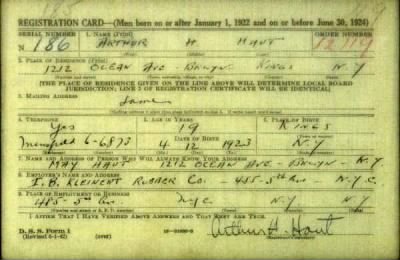 REGISTRATION CARD—(Men born on or after January 1, 1922 and on or before June 30, 1924)
SERIAL NUMBER 1. NAME (Print) ORDER NUMBER
N 186 ARTHUR H HAUT 12119
2. PLACE OF RESIDENCE (Print)
1212 OCEAN AVE BKLYN KINGS N.Y
[THE PLACE OF RESIDENCE GIVEN ON THE LINE ABOVE WILL DETERMINE LOCAL BOARD
JURISDICTION; LINE 2 OF REGISTRATION CERTIFICATE WILL BE IDENTICAL]
3. MAILING ADDRESS
Same
4. TELEPHONE 5. AGE IN YEARS 6. PLACE OF BIRTH
Yes 19 KINGS
DATE OF BIRTH
Mansfield 6-6873 4 12 1923 N.Y
7. NAME AND ADDRESS OF PERSON WHO WILL ALWAYS KNOW YOUR ADDRESS
MAY HAUT 1212 OCEAN AVE - BKLYN - N.Y.
8. EMPLOYER'S NAME AND ADDRESS
I.B. KLEINERT RUBBER Co. - 485-5th Ave N.Y.C.
9. PLACE OF EMPLOYMENT OR BUSINESS
485-5th Av. NYC N.Y N.Y
I AFFIRM THAT I HAVE VERIFIED ABOVE ANSWERS AND THAT THEY ARE TRUE.
D. S. S. Form 1
(Revised 6-1-42) (over) Arthur H. Haut